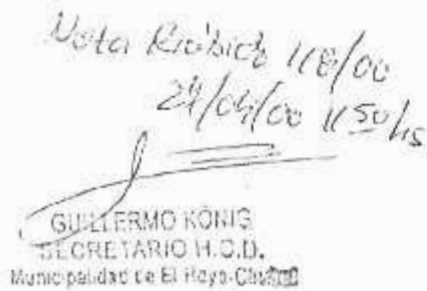 Nota Recibida 118/00
24/04/00 11 50 hs
GUILLERMO KÖNIG
SECRETARIO H.C.D.
Municipalidad de El Hoyo-Chubut